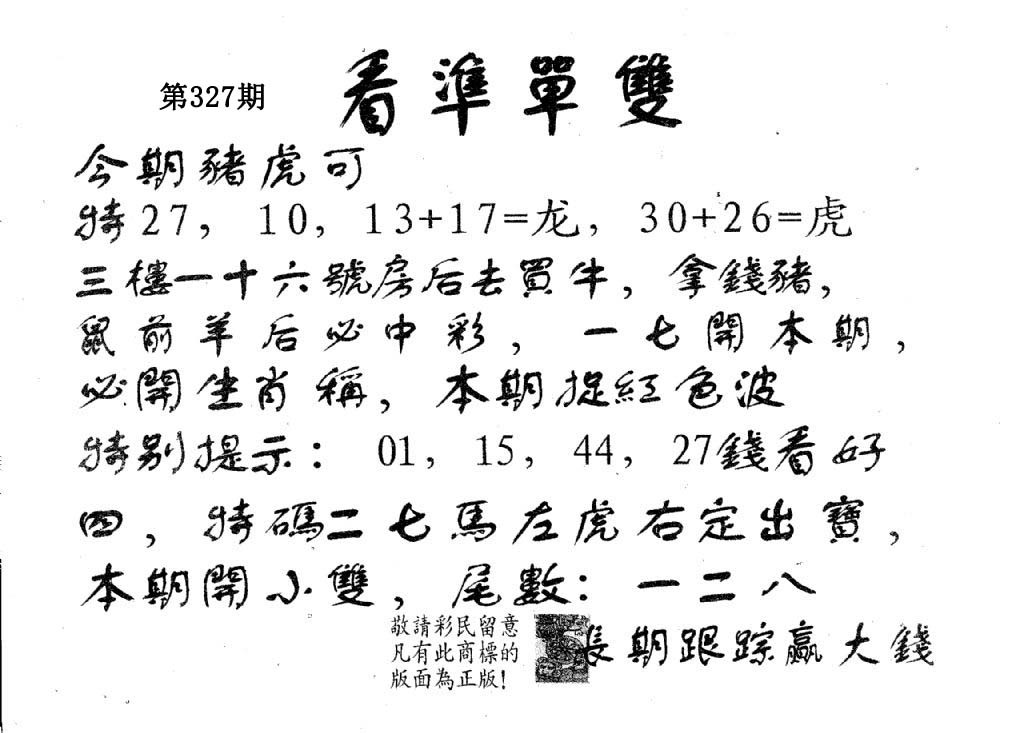 第327期
看準單雙
今期豬虎可
特27，10，13+17=龙，30+26=虎
三樓一十六號房后去買牛，拿錢豬，
鼠前羊后必中彩，一七開本期，
必開生肖稱，本期捉紅色波
特别提示：01，15，44，27錢看好
四，特碼二七馬左虎右定出寶，
本期開小雙，尾數：一二八
敬請彩民留意
凡有此商標的
版面為正版！
長期跟踪赢大錢